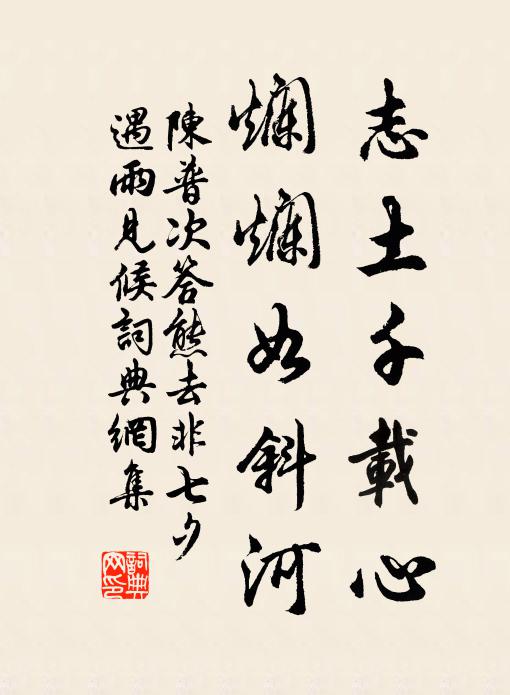 志士千載心
爛爛如斜河
陳普次答熊去非七夕
遇雨見候詞典網集
詞典
网印